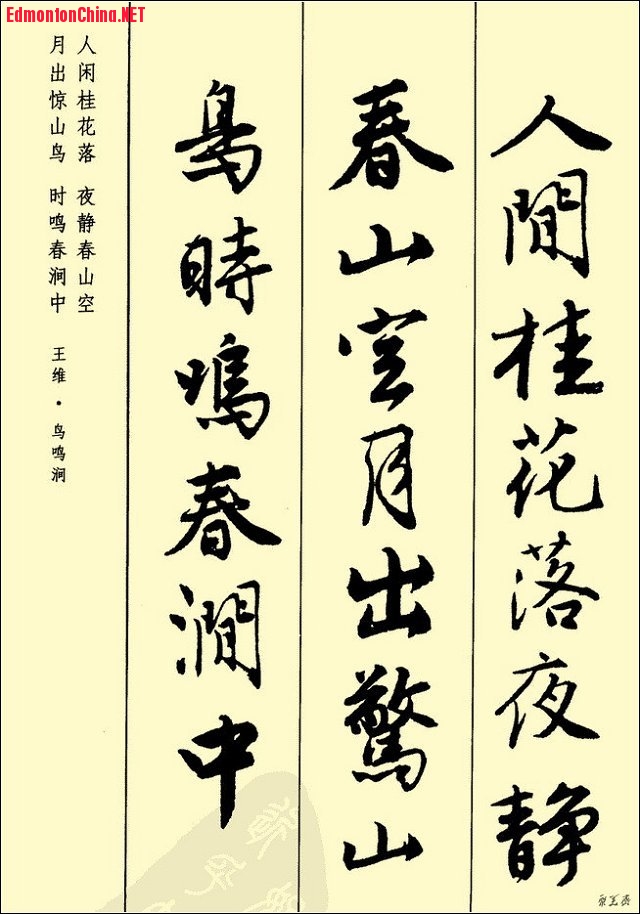 EdmontonChina.NET
人閒桂花落夜静
春山空月出驚山
鳥時鳴春澗中
人闲桂花落 夜静春山空
月出惊山鸟 时鸣春涧中
王维·鸟鸣涧